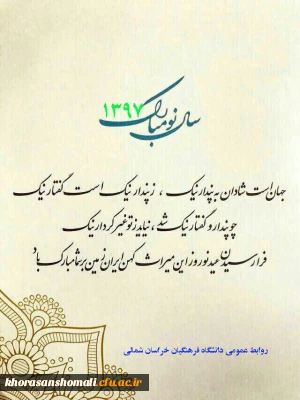 سال نو مبارک ۱۳۹۷
جهان است شادان به پندار نیک ، ز پندار نیک است گفتار نیک
چو پندار و گفتار نیک شد ، نیاید ز تو غیر کردار نیک
فرا رسیدن عید نوروز این میراث کهن ایران زمین بر شما مبارک باد
روابط عمومی دانشگاه فرهنگیان خراسان شمالی
khorasanshomali.cfu.ac.ir